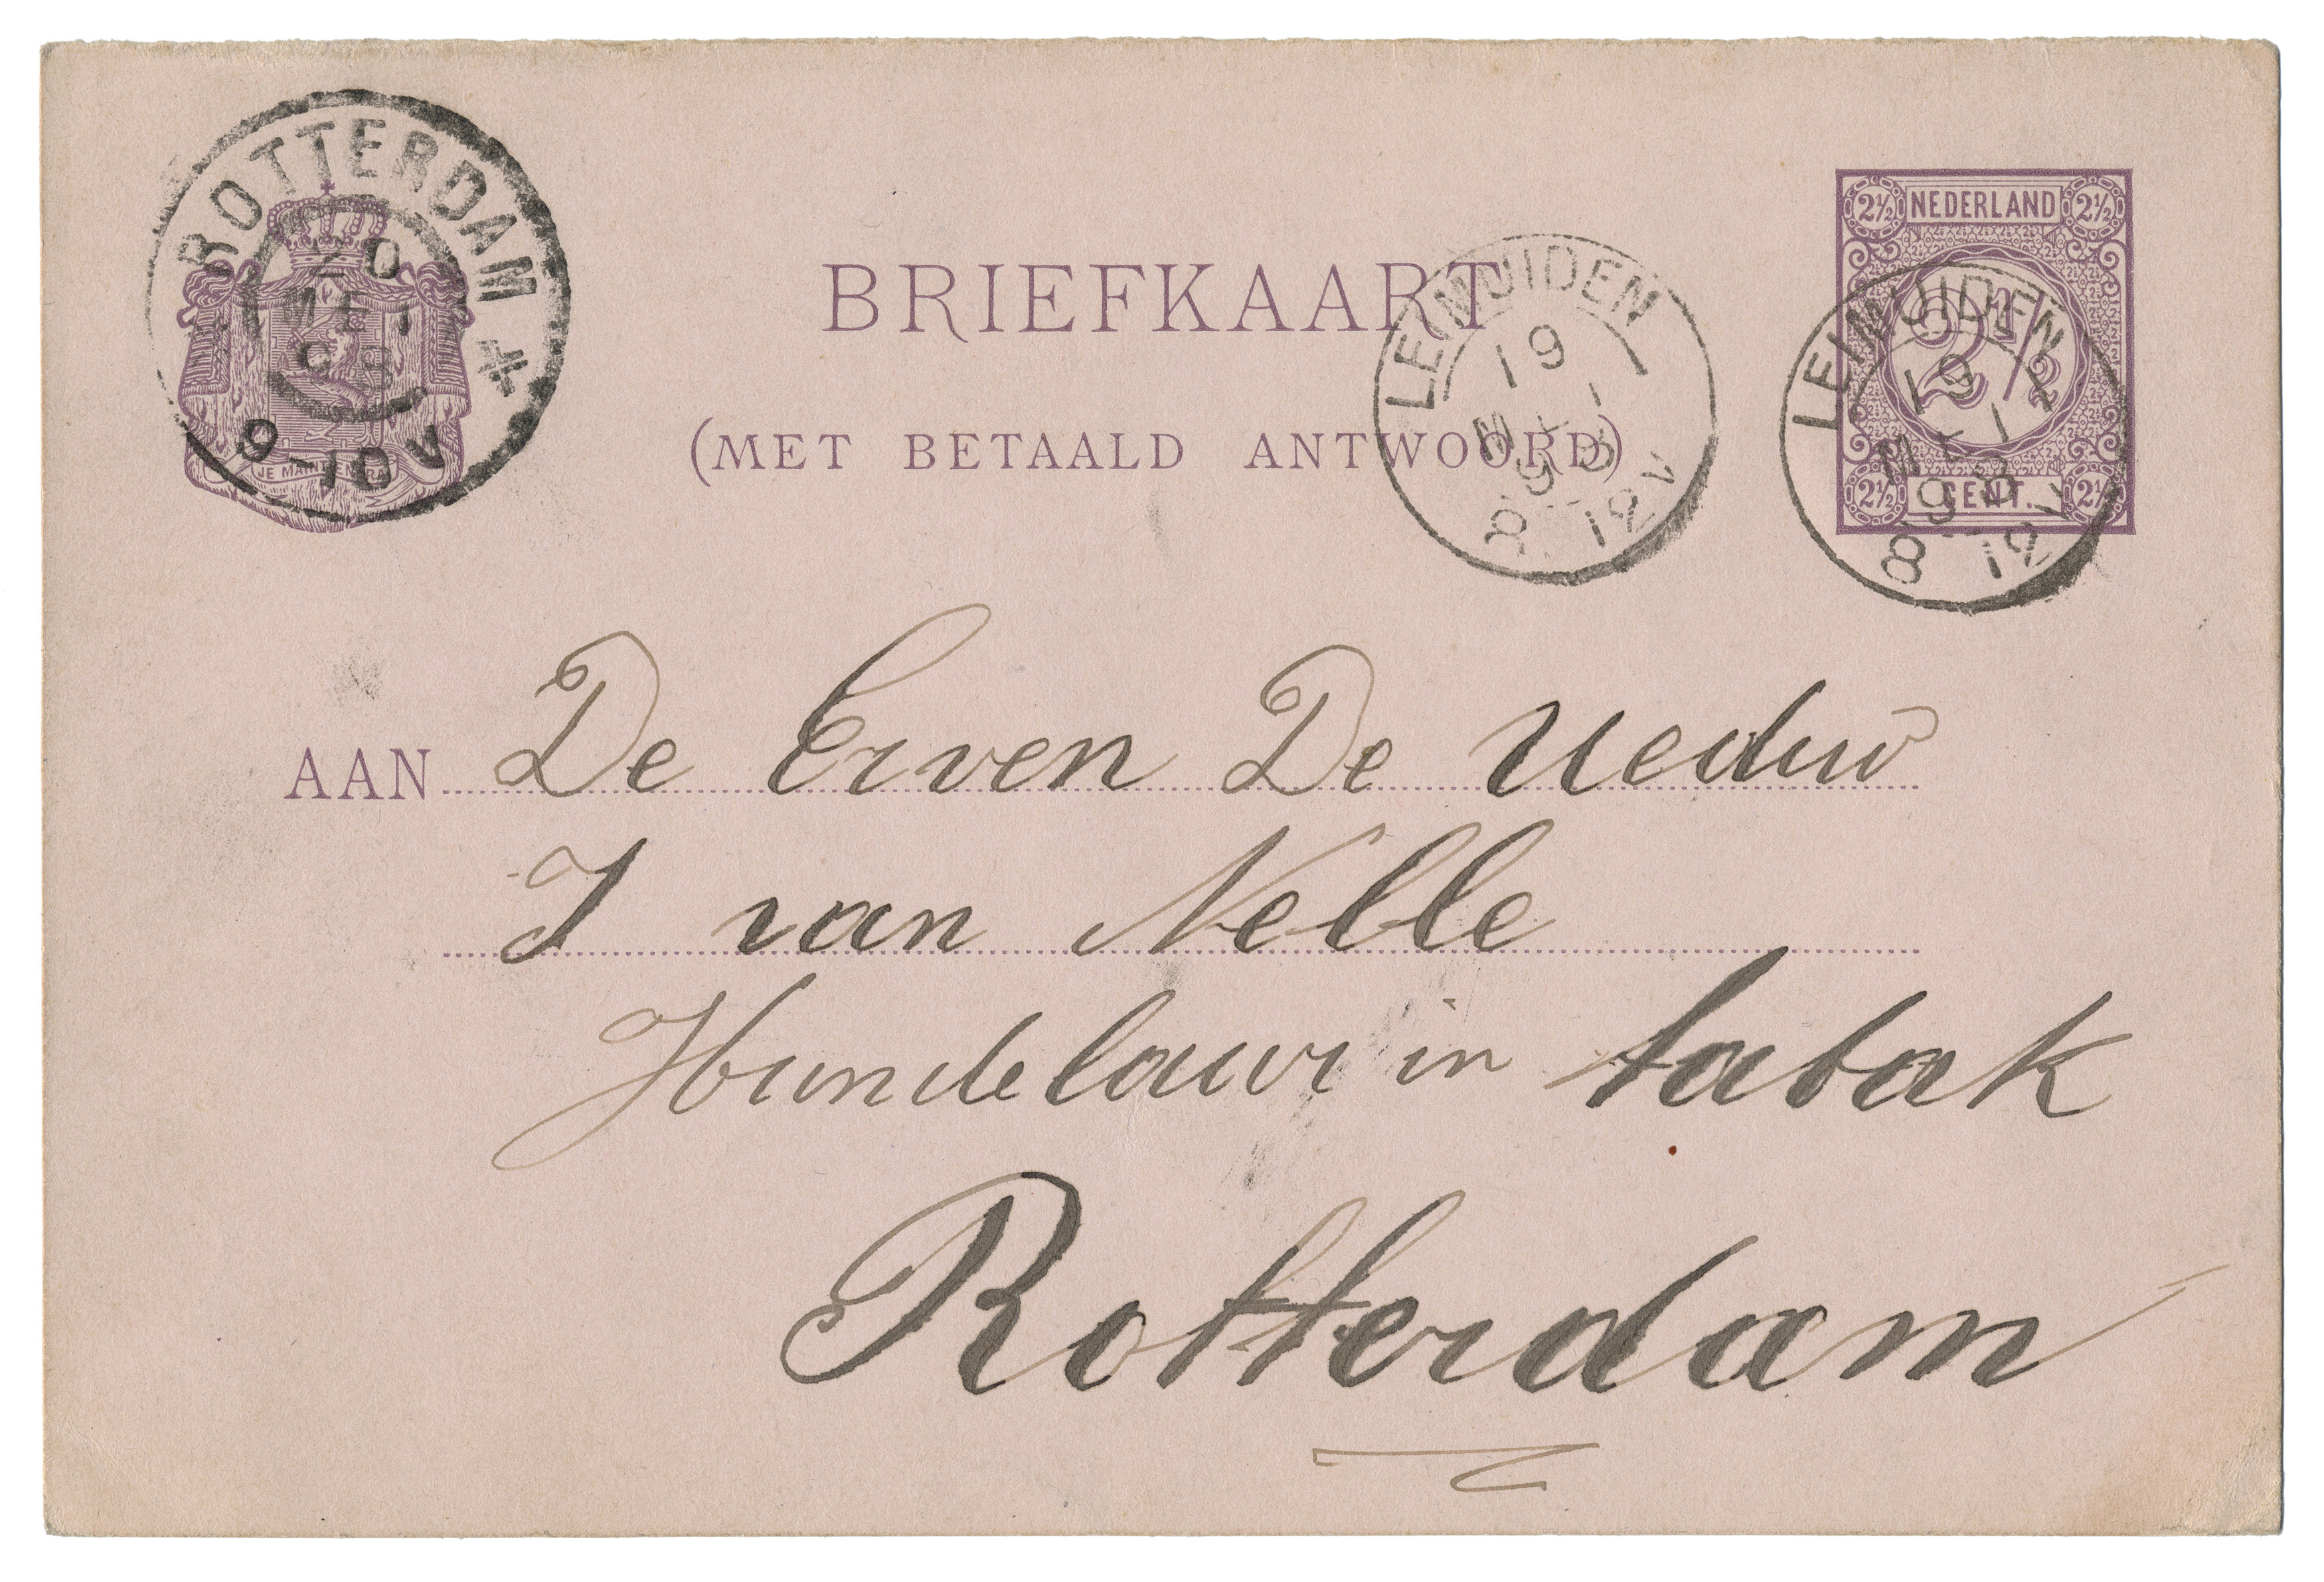 ROTTERDAM
20
MEI
98
9-10V
JE MAINTIENDRAI
BRIEFKAART
(MET BETAALD ANTWOORD)
LEIMUIDEN
19
MEI
98
8-12V
NEDERLAND
2½ 2½
2½
2½ CENT. 2½
LEIMUIDEN
19
MEI
98
8-12V
AAN De Erven De Weduw
J van Nelle
Handelaar in tabak
Rotterdam